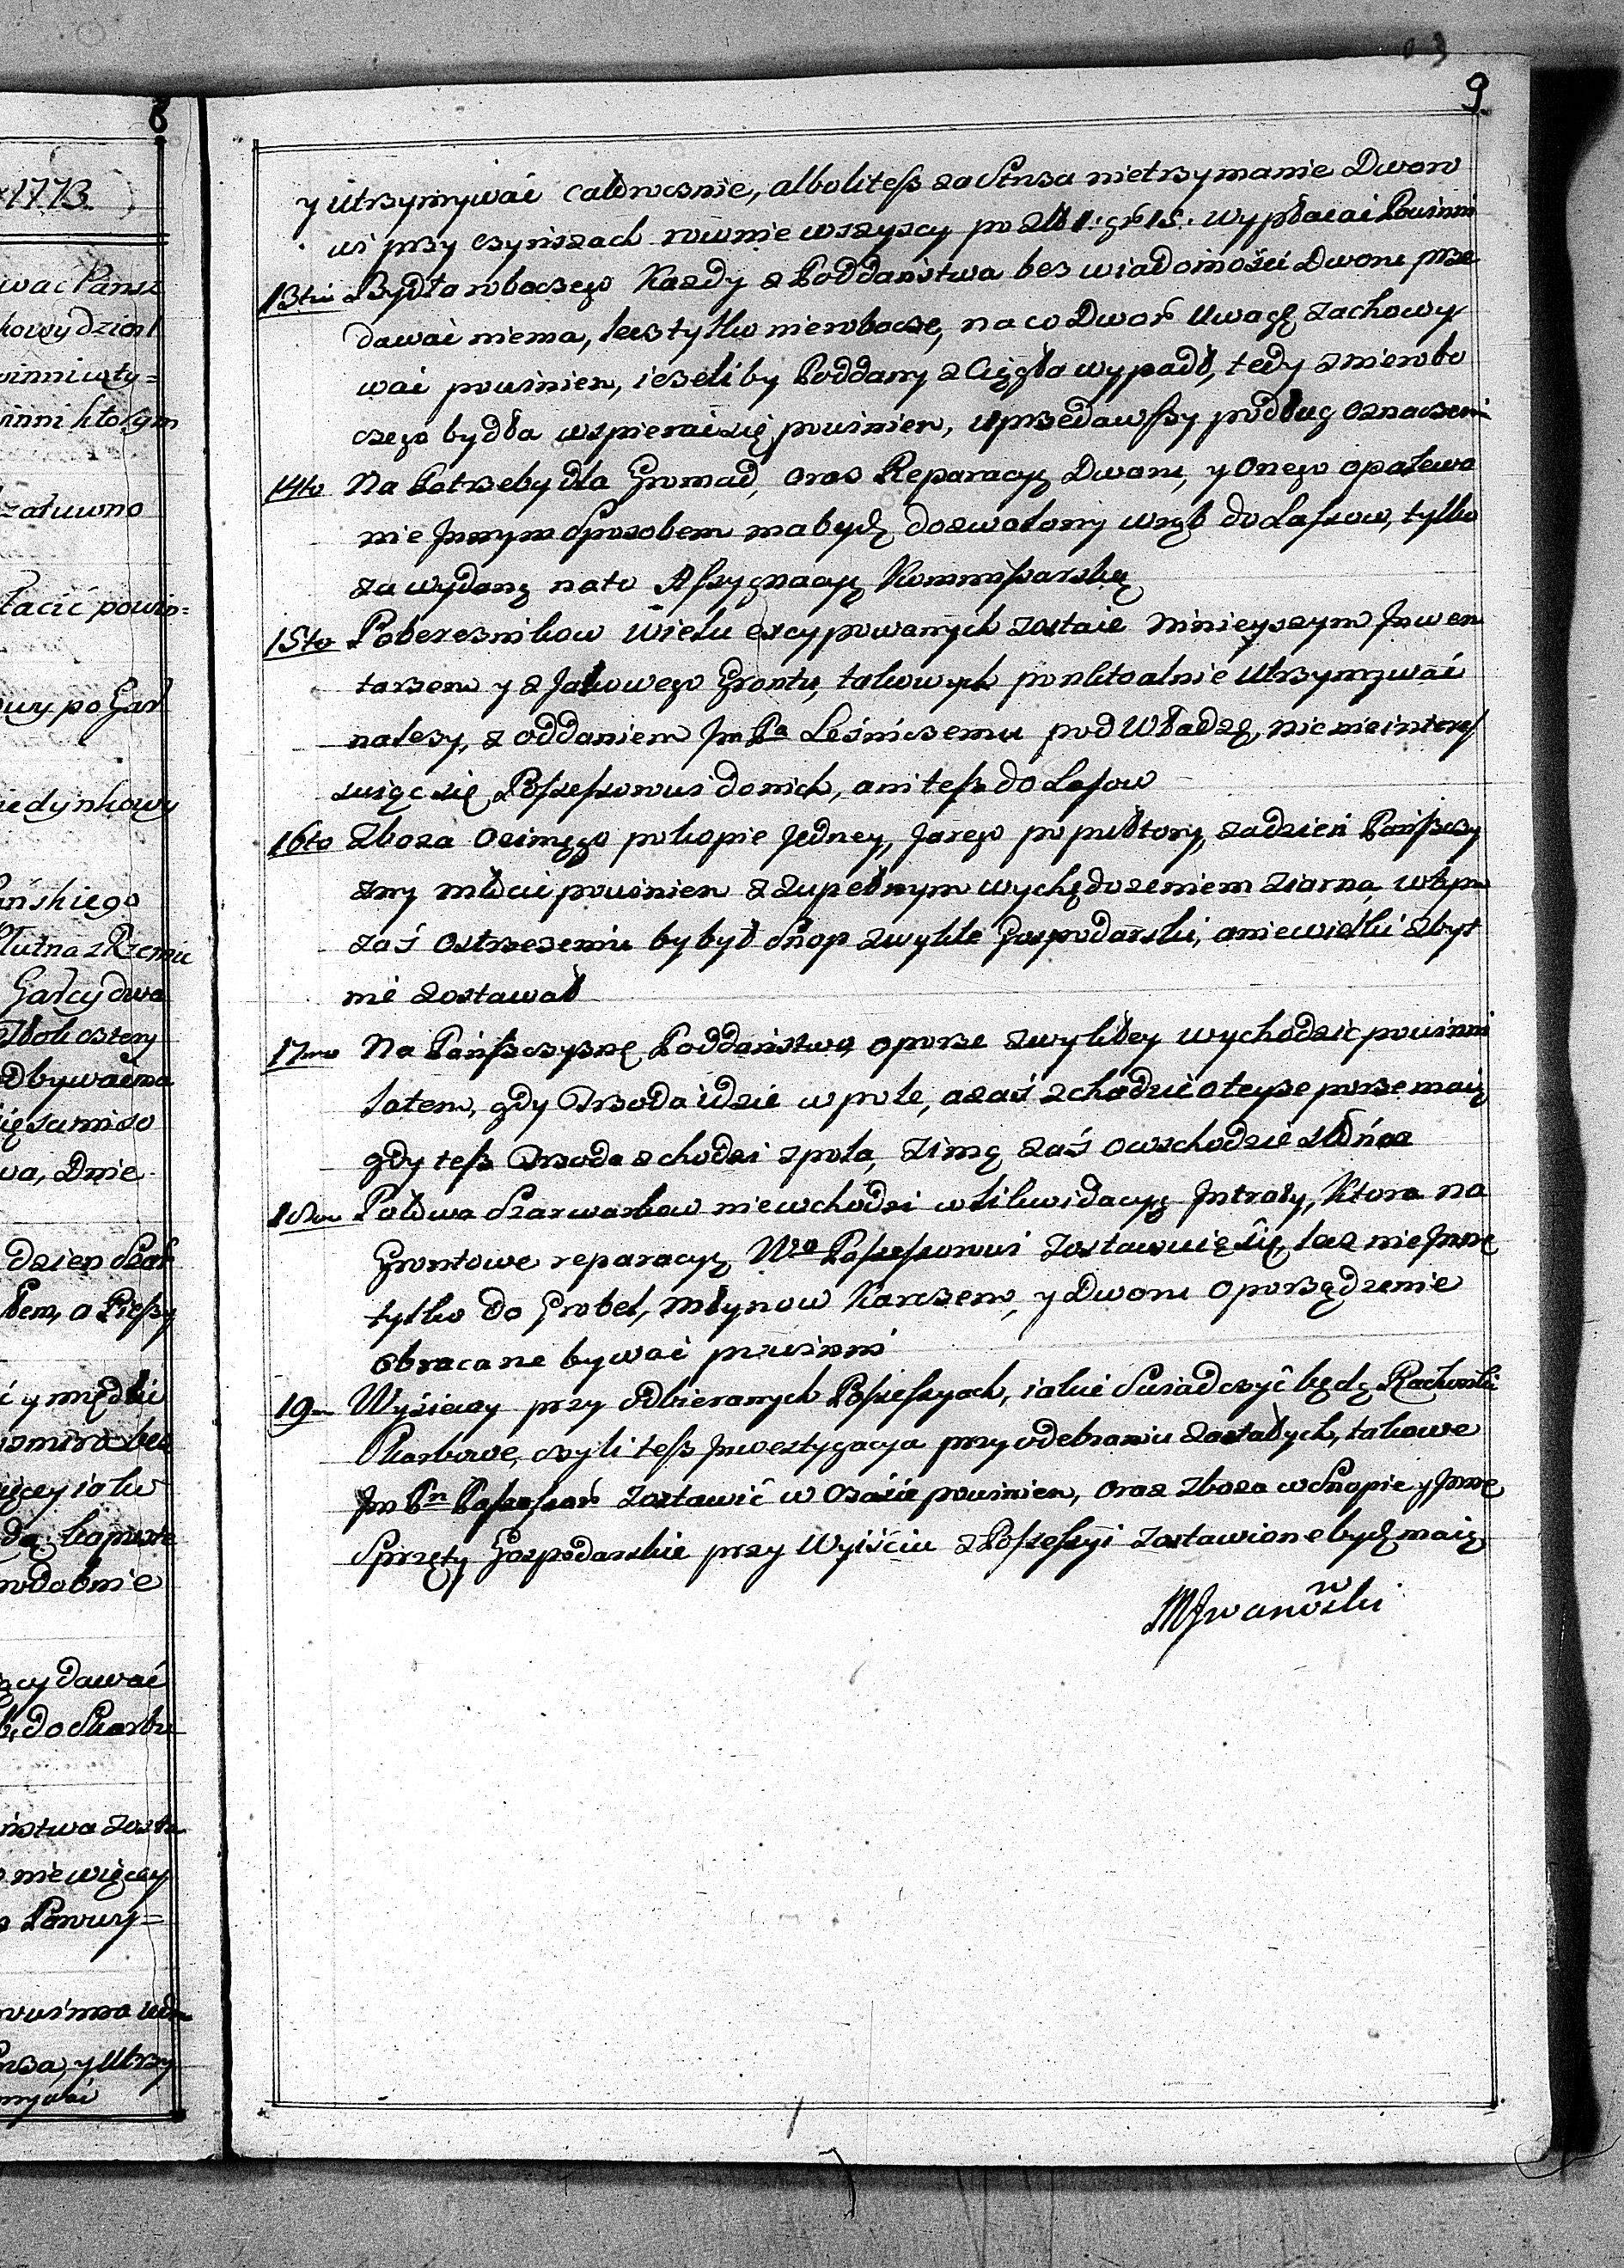 8
x 1773.
wać Pańsz
kowy dział
winni wty=
inni ktorym
załuwno
łacić powin=
owy po Gar
iedynkowy
ańskiego
Płutna z Rzemie
Garcy dwa
Złoli cztery
odbywać ma
się samiso
wa, Dnie
dzien Szar
łem, a Pieszy
ć y miedzi
więcey iako
dą kopuste
podobnie
ący dawać
b, do Skarbu
ństwa zosta
o nie więcey
Powuy=
powinna
y Utrzy
mywać
9
y Utrzymywać całorocznie, albolitesz za Stroza nietrzymanie Dworo
wi przy czynszach rownie wszyscy po Zło 1: gr 15: wypłacać Powinni
13tio Bydła roboczego Kazdy z Poddaństwa bez wiadomości Dworu prze
dawać niema, lecz tylko nierobocze, na co Dwor Uwagę zachowy
wać powinien, iezeliby Poddany z Cięgła wypadł, tedy z nierobo
czego bydła wspierać się powinien, uprzedawszy podług oznaczeni
14to Na Potrzeby dla Gromad, oraz Reparacyę Dworu, y Onego opalewa
nie Jnnym Sposobem ma bydź dozwolony wrąb do Lassow, tylko
za wydaną nato Assygnacyą Kommissarską
15to Pobereznikow wielu excypowanych zostaie Ninieyszym Jnwen
tarzem y z Jakowego Grontu, takowych ponktoalnie Utrzymywać
nalezy, z oddaniem Jm Pa Leśniczemu pod Władzę, nic nie interes
suiąc się Possessorowi do nich, ani tesz do Lasow
16to Zboza Ozimego po kopie Jedney, Jarego po pułtory, za dzień Pańszczy
zny młocić powinien z zupełnym wychędozeniem ziarna, w tym
zaś Ostrzezeniu by był Snop zwykle Gospodarski, a niewielki zbyt
nie zostawał
17mo Na Pańszczyznę Poddaństwo o porze zwykłey wychodzić powinni
latem, gdy Trzoda idzie w pole, azaś zchodzić o teyze porze maią
gdy tesz Trzoda zchodzi z pola, zimą zaś o wschodzie słońca
18vo Połowa Szarwarkow niewchodzi w likwidacyę Jntraty, Ktora na
Grontowe reparacyę Wo Possessorowi zostawuie się, lecz nie Jnne
tylko do Grobel, Młynow Karczem, y Dworu oporządzenie
obracane bywać powinni
19no Wysiewy przy odbieranych Possessyach, iakie Swiadczyć będą Rachunki
Skarbowe, czyli tesz Jnwestygacya przy odebraniu zostałych, takowe
Jm Pn Possessor zostawić w Osóbie powinien, oraz zboza w Snopie y Jnne
Sprzęty Gospodarskie przy Wyiściu z Possessyi zostawione bydź maią
MJwanowski